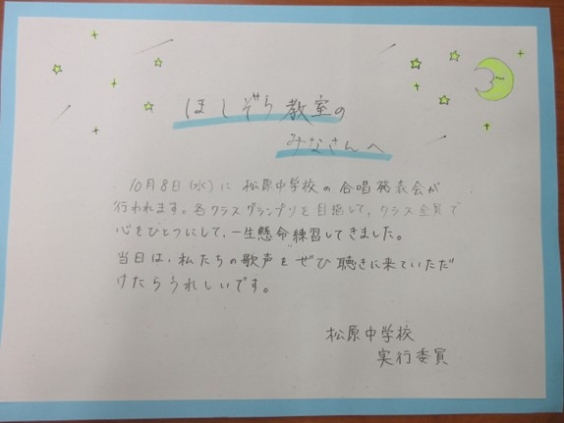 ほしぞら教室の
みなさんへ
10月8日(水)に 松原中学校の合唱発表会が
行われます。各クラスグランプリを目指して、クラス全員で
心をひとつにして、一生懸命練習してきました。
当日は、私たちの歌声をぜひ聴きに来ていただ
けたらうれしいです。
松原中学校
実行委員